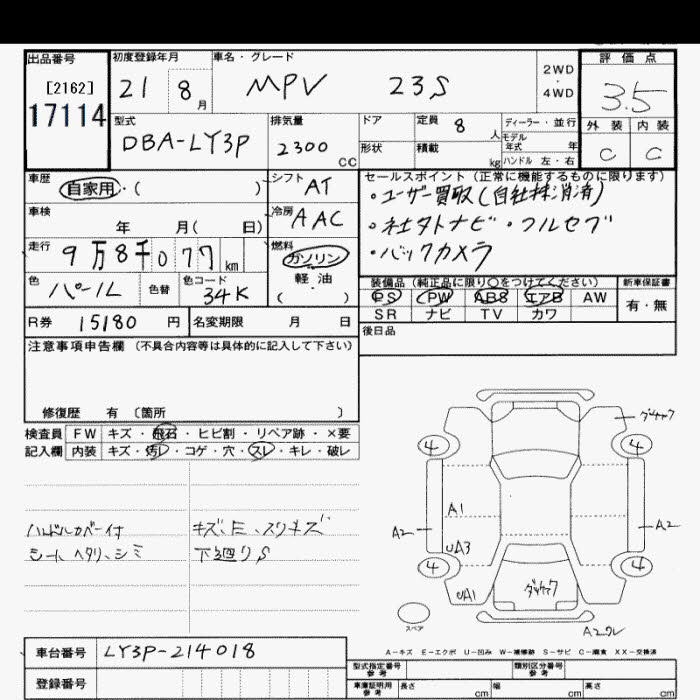 出品番号
[2162]
17114
初度登録年月
21 8 月
車名・グレード
MPV 23S
2WD
・
4WD
評 価 点
3.5
外 装 内 装
C C
型式
DBA-LY3P
排気量
2300 CC
ドア
形状
定員 8 人
積載 kg
ディーラー・並行
モデル
年式 年
ハンドル 左・右
車歴
自家用・( )
シフト
AT
車検
年 月( 日)
冷房
AAC
走行
9万8千077 km
燃料
ガソリン
軽・油
( )
色
パール
色替
色コード
34K
セールスポイント(正常に機能するものに限ります)
・ユーザー買取(自社株消済)
・社外ナビ・フルセグ
・バックカメラ
装備品(純正品に限り○をつけてください)
新車保証書
PS PW ABS エアB AW
有・無
SR ナビ TV カワ
R券 15180 円
名変期限 月 日
後日品
注意事項申告欄(不具合内容等は具体的に記入して下さい)
修復歴 有 〔箇所 〕
検査員 FW キズ・飛石・ヒビ割・リペア跡・×要
記入欄 内装 キズ・汚レ・コゲ・穴・スレ・キレ・破レ
ハンドルカバー付
シートヘタリ、シミ
キズ、E、スリキズ
下廻りS
4 4
A1
A2 A2
UA3
4 4
UA1
スペア
A2ワレ
A-キズ E-エクボ U-凹み W-補修跡 S-サビ C-腐食 XX-交換済
車台番号 LY3P-214018
登録番号
型式指定番号
参考
類別区分番号
参考
車庫証明用
参考
長さ cm 幅 cm 高さ cm